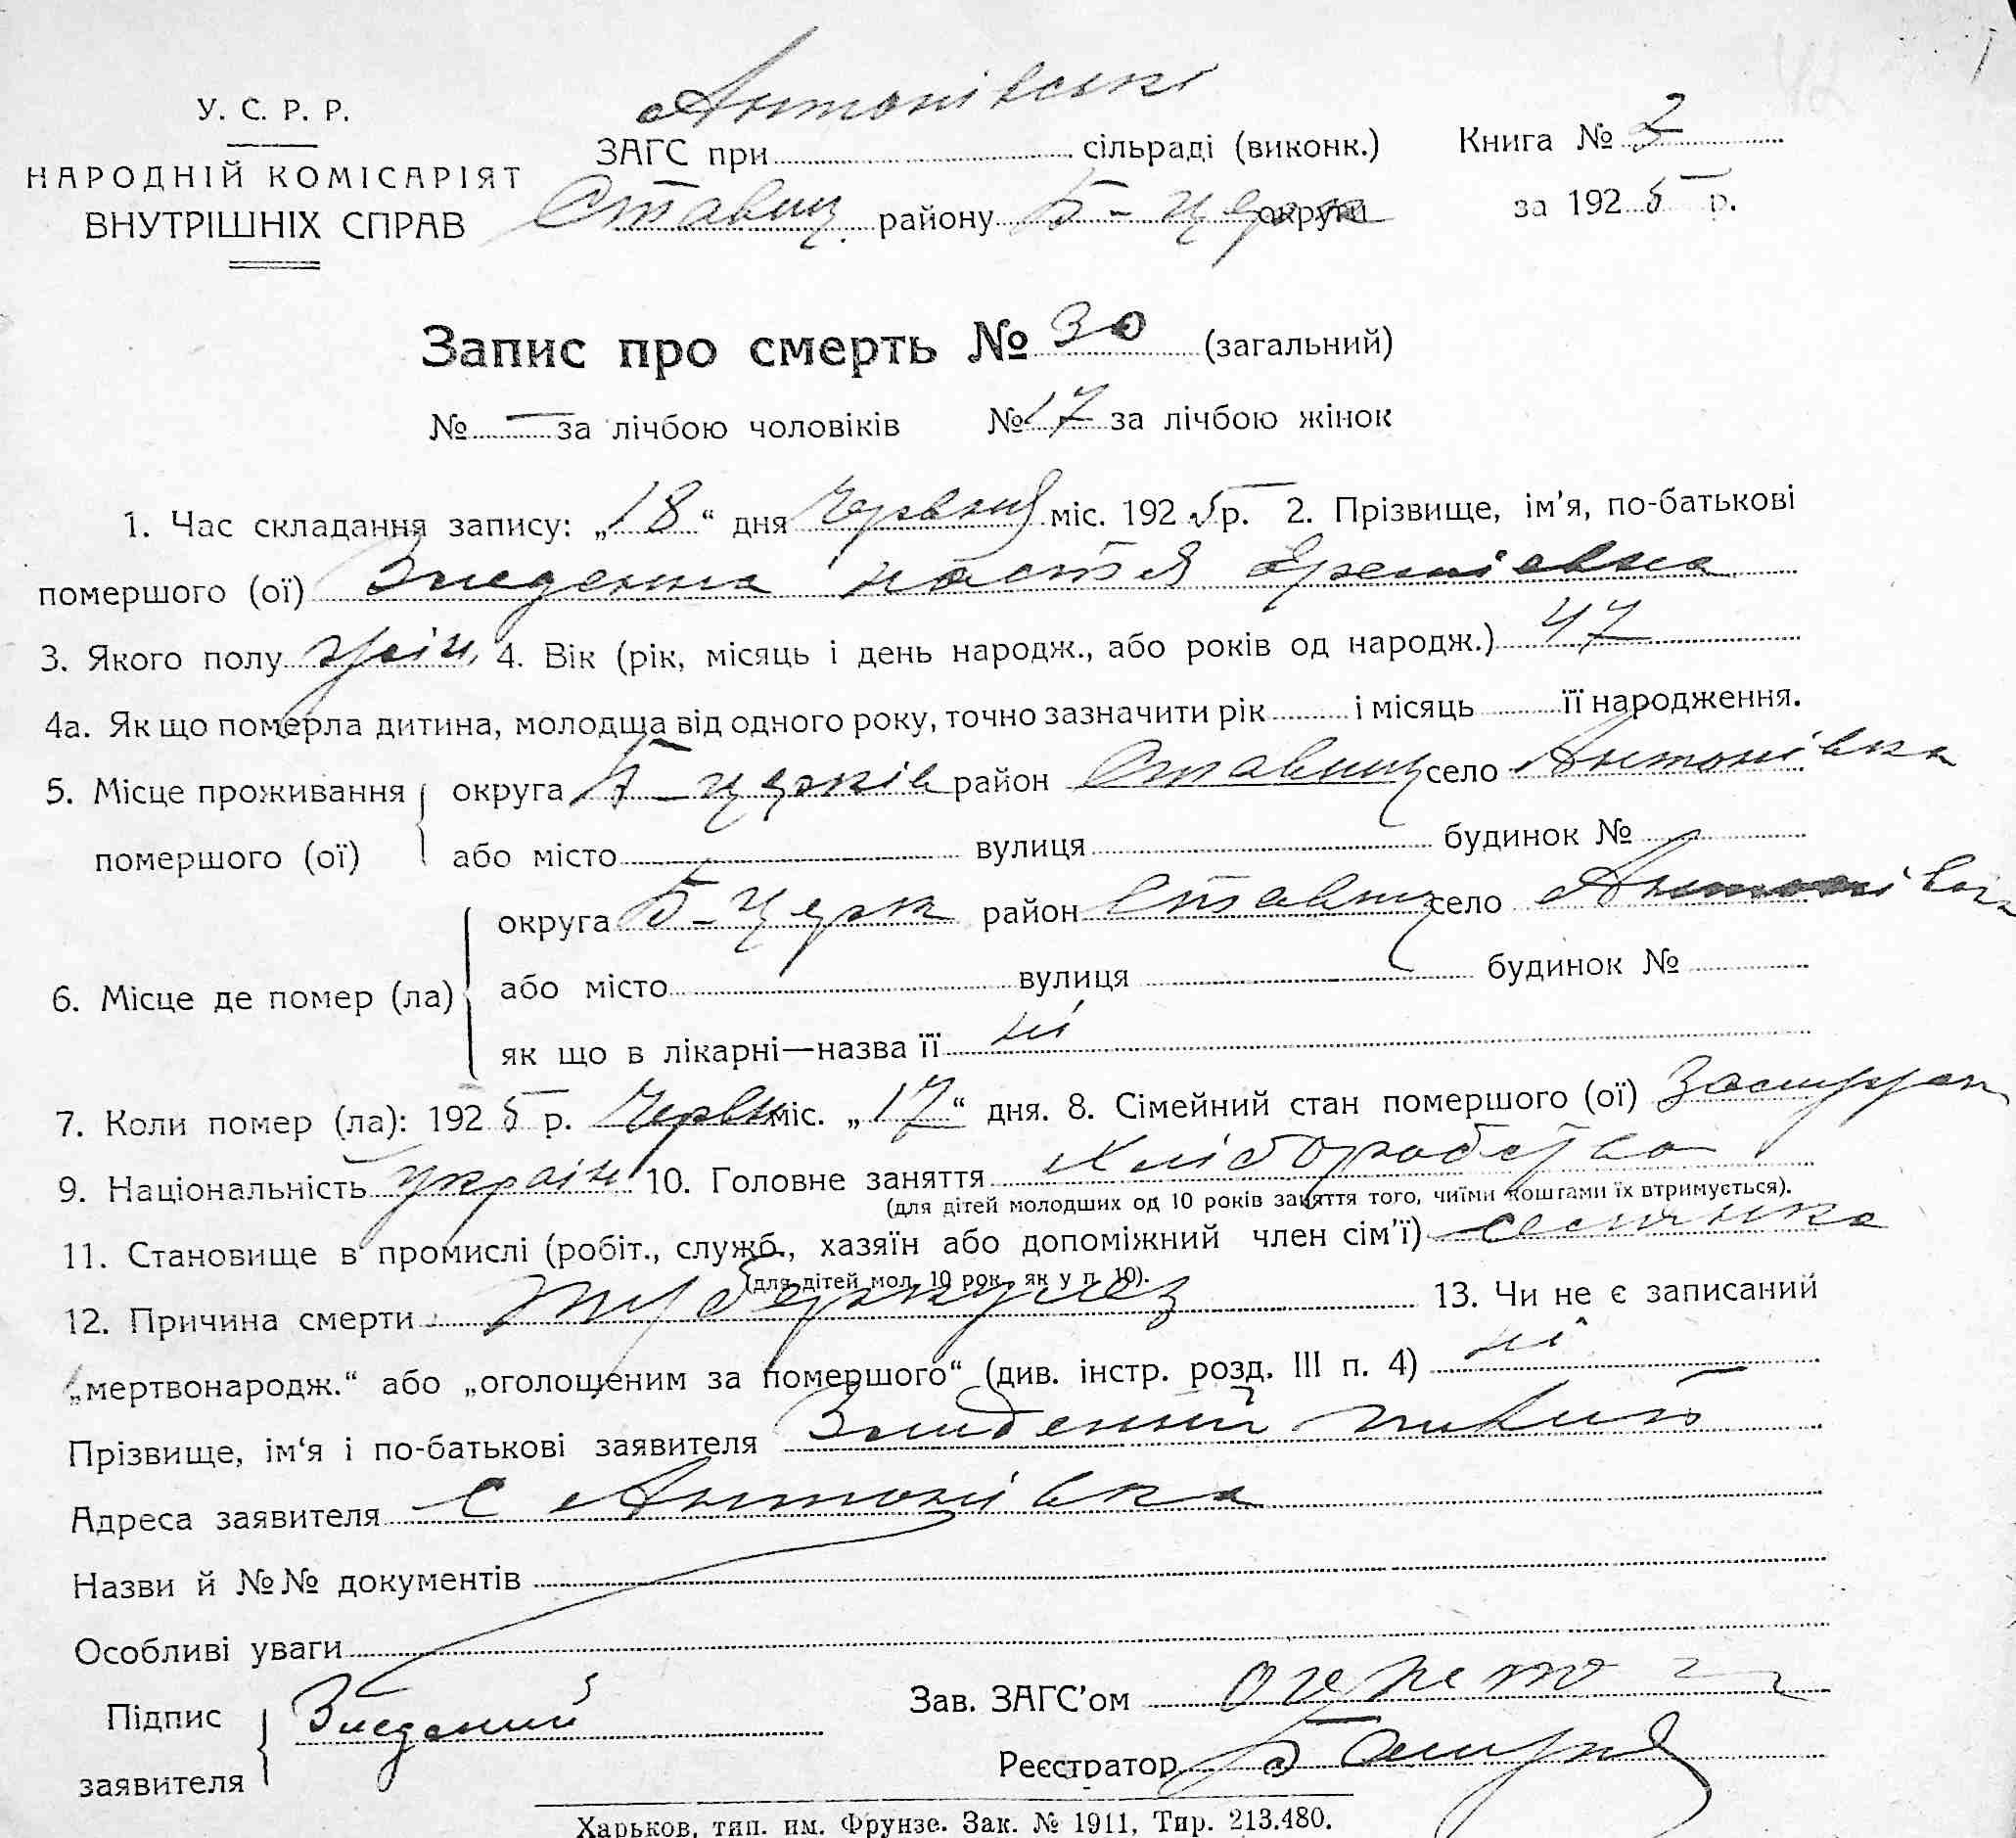 Антонівські
У. С. Р. Р.
НАРОДНІЙ КОМІСАРІЯТ
ВНУТРІШНІХ СПРАВ
ЗАГС при сільраді (виконк.) Книга № 2
Ставищ. району Б-Церк округи за 1925 р.
Запис про смерть № 30 (загальний)
№ — за лічбою чоловіків № 17 за лічбою жінок
1. Час складання запису: „18“ дня Червня міс. 1925 р. 2. Прізвище, ім'я, по-батькові
помершого (ої) Настя
3. Якого полу жін. 4. Вік (рік, місяць і день народж., або років од народж.) 47
4а. Як що померла дитина, молодша від одного року, точно зазначити рік і місяць її народження.
5. Місце проживання помершого (ої) округа Б-Церків район Ставищ село Антонівка
або місто вулиця будинок №
6. Місце де помер (ла) округа Б-Церк район Ставищ село Антонівка
або місто вулиця будинок №
як що в лікарні—назва її ні
7. Коли помер (ла): 1925 р. Червн міс. „17“ дня. 8. Сімейний стан помершого (ої)
9. Національність україн 10. Головне заняття Хліборобство
(для дітей молодших од 10 років заняття того, чиїми коштами їх втримується).
11. Становище в промислі (робіт., служб., хазяїн або допоміжний член сім'ї)
(для дітей мол. 10 рок. як у п. 10).
12. Причина смерти туберкулез 13. Чи не є записаний
„мертвонародж.“ або „оголошеним за помершого“ (див. інстр. розд. III п. 4) ні
Прізвище, ім'я і по-батькові заявителя
Адреса заявителя с Антонівка
Назви й №№ документів
Особливі уваги
Підпис заявителя
Зав. ЗАГС'ом
Реєстратор
Харьков, тип. им. Фрунзе. Зак. № 1911, Тир. 213.480.